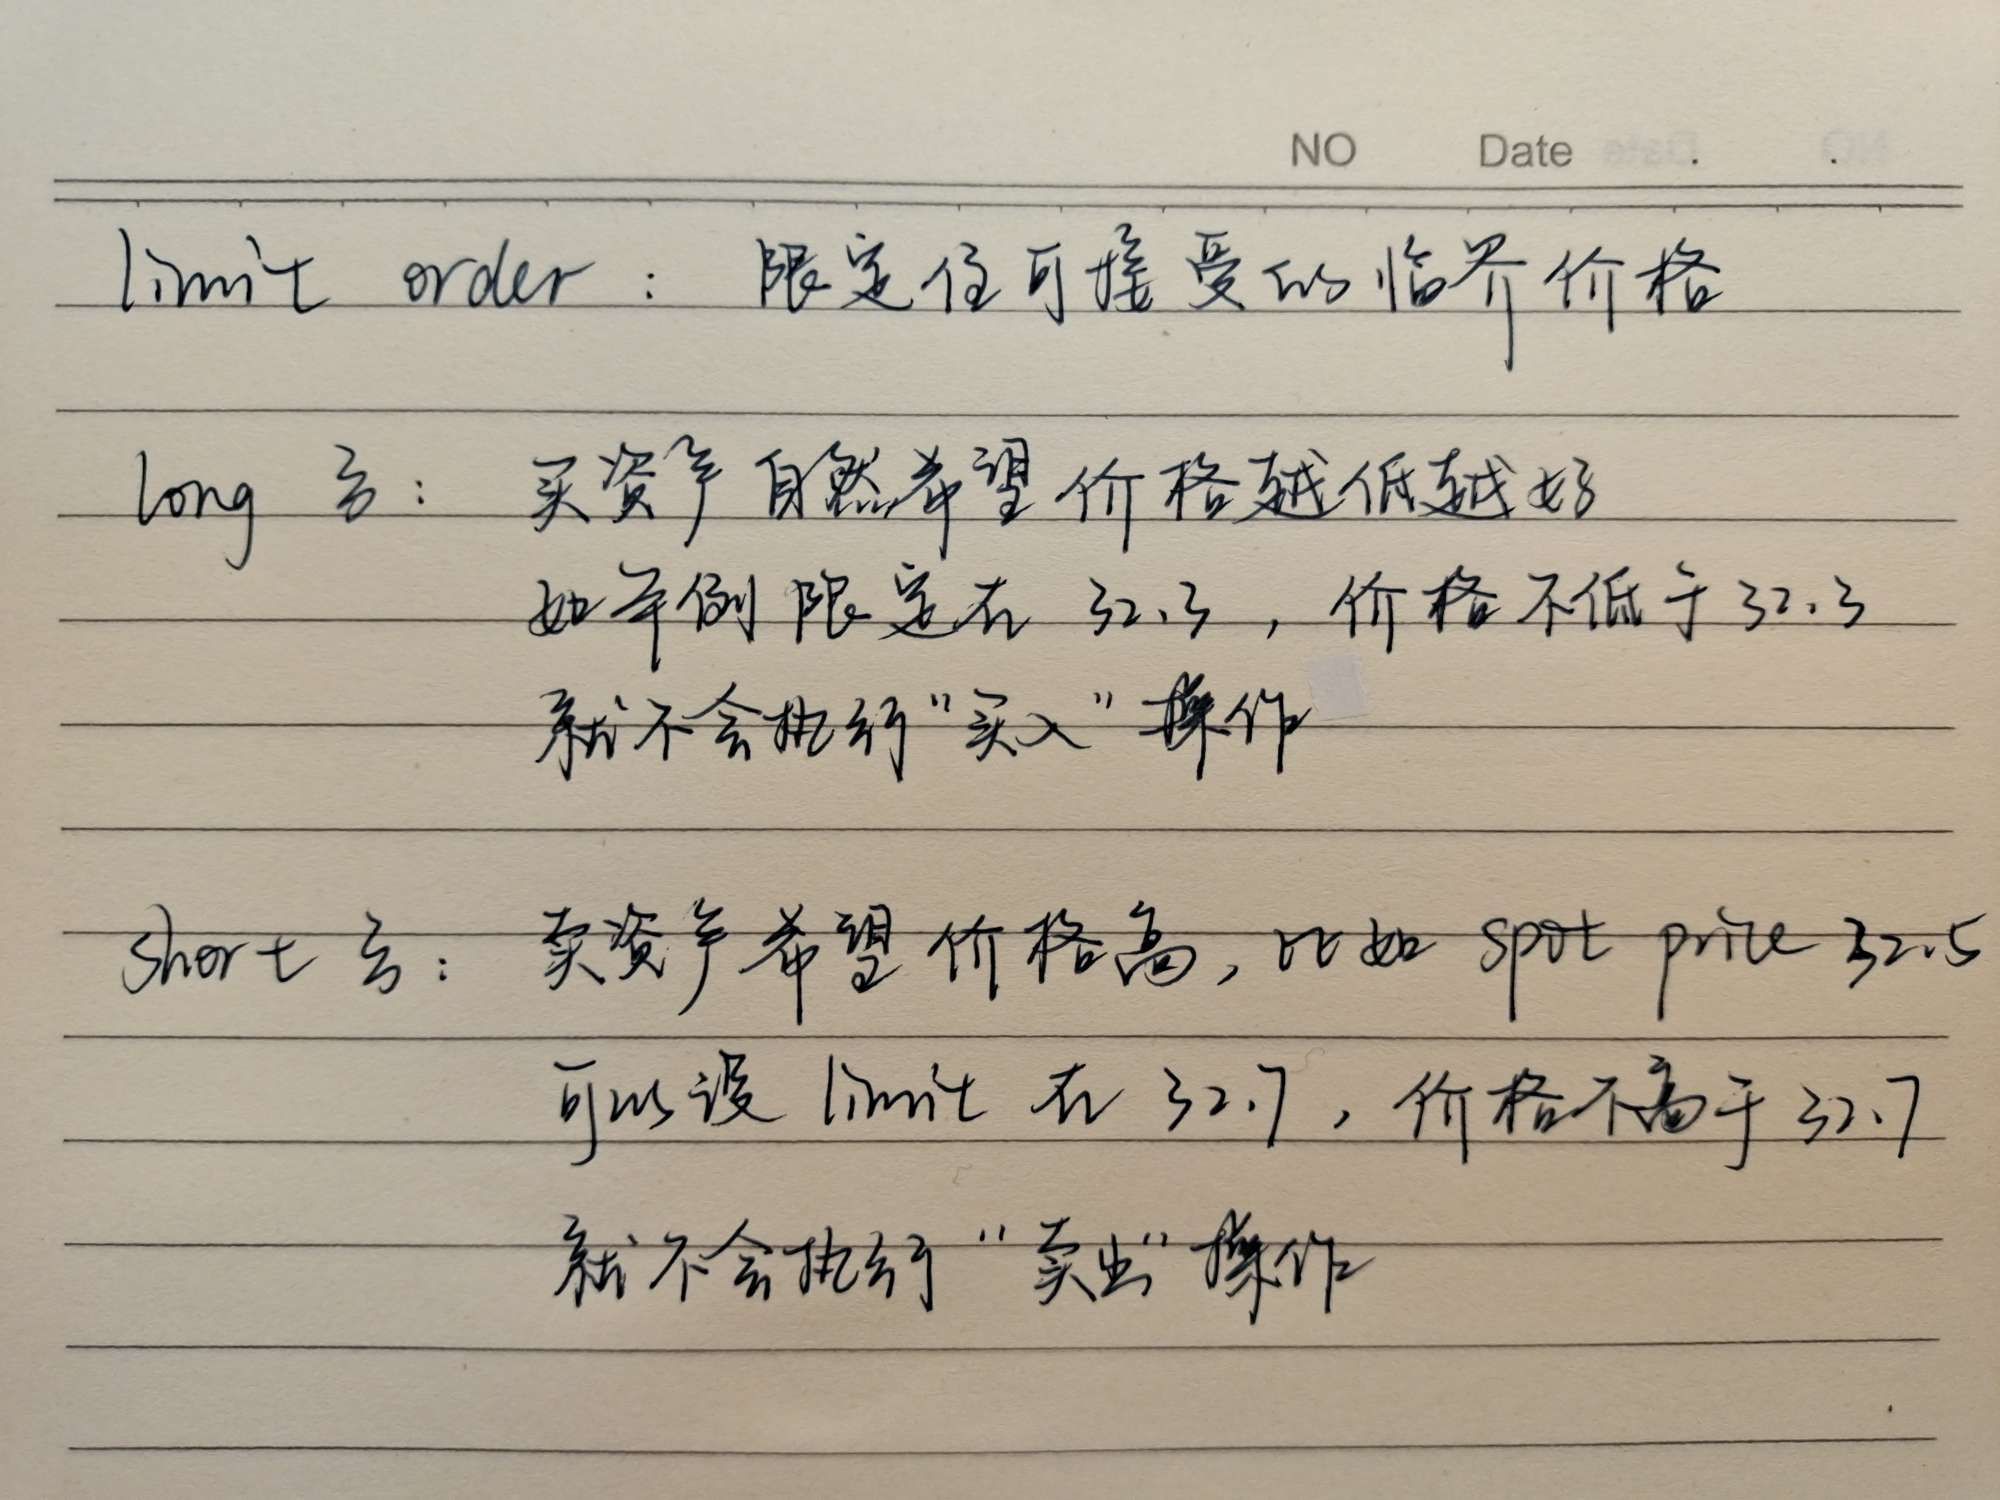 NO Date . .
limit order : 限定住可接受的临界价格
long 方 : 买资产自然希望价格越低越好
如本例限定在 32.3 , 价格不低于 32.3
就不会执行 "买入" 操作
short 方 : 卖资产希望价格高 , 比如 spot price 32.5
可以设 limit 在 32.7 , 价格不高于 32.7
就不会执行 "卖出" 操作